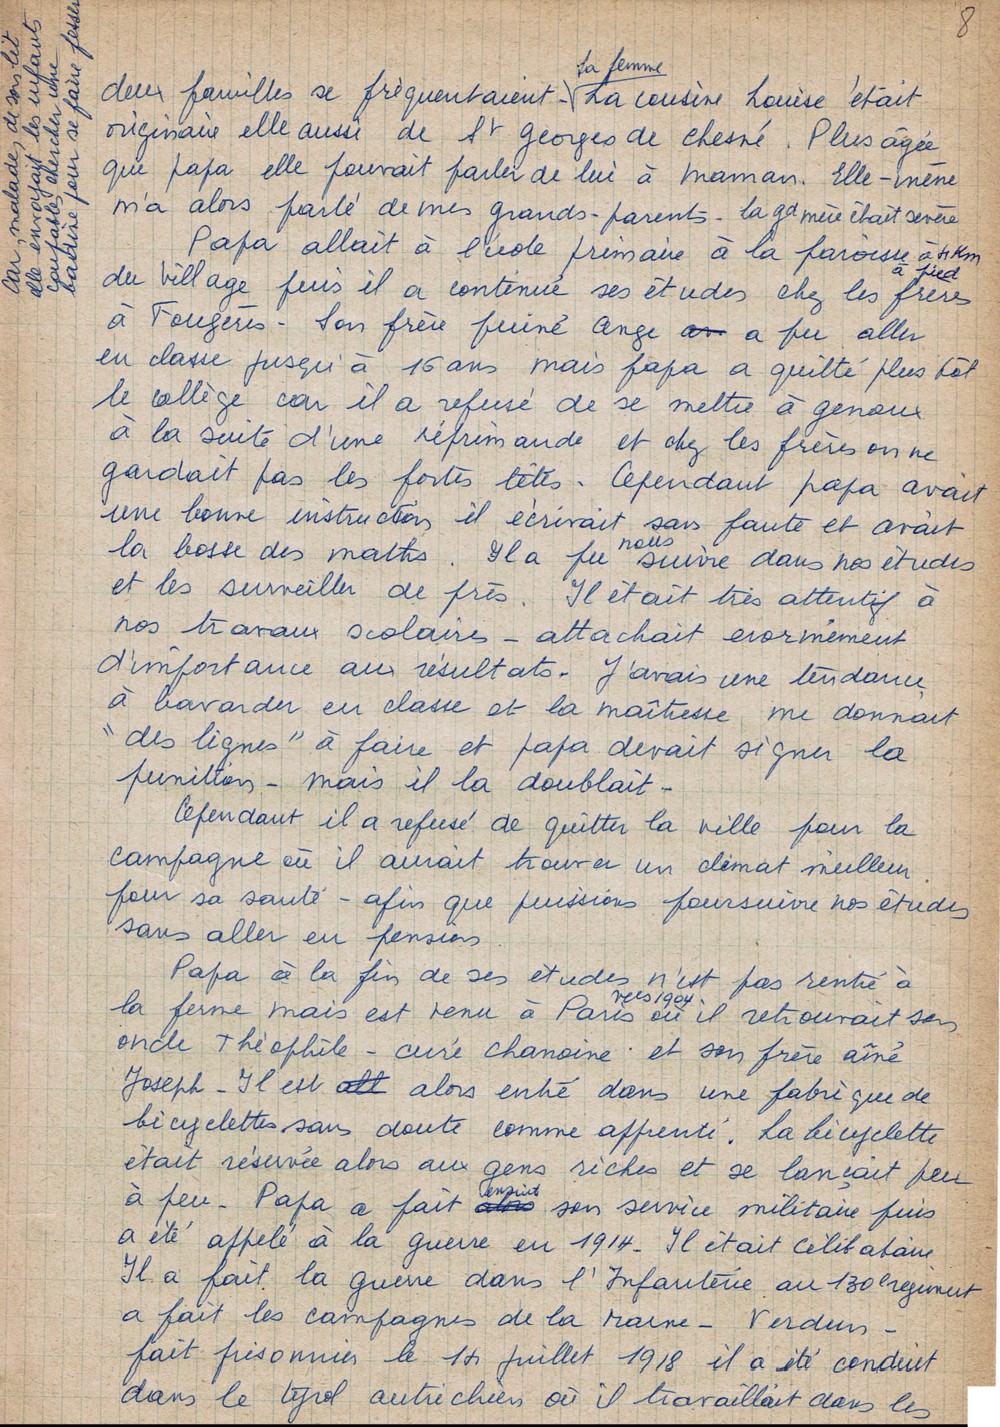 8
car, malade, de son lit
elle envoyait les enfants
coupables chercher une
badine pour se faire fesser
la femme
deux familles se fréquentaient - La cousine Louise était
originaire elle aussi de St Georges de Chesné. Plus âgée
que papa elle pouvait parler de lui à maman. Elle-même
m'a alors parlé de mes grands-parents - la gd mère était sévère
Papa allait à l'école primaire à la paroisse à 4 Km
à pied
du village puis il a continué ses études chez les frères
à Fougères - Son frère puiné Ange a pu aller
en classe jusqu'à 16 ans mais papa a quitté plus tôt
le collège car il a refusé de se mettre à genoux
à la suite d'une réprimande et chez les frères on ne
gardait pas les fortes têtes. Cependant papa avait
une bonne instruction il écrivait sans faute et avait
la bosse des maths. Il a pu nous suivre dans nos études
et les surveiller de près. Il était très attentif à
nos travaux scolaires - attachait enormément
d'importance aux résultats. J'avais une tendance
à bavarder en classe et la maîtresse me donnait
"des lignes" à faire et papa devait signer la
punition - mais il la doublait -
Cependant il a refusé de quitter la ville pour la
campagne où il aurait trouver un climat meilleur
pour sa santé - afin que puissions poursuivre nos études
sans aller en pension
Papa à la fin de ses études n'est pas rentré à
vers 1904
la ferme mais est venu à Paris où il retrouvait son
oncle Théophile - curé chanoine et son frère aîné
Joseph - Il est alors entré dans une fabrique de
bicyclettes sans doute comme apprenti. La bicyclette
était réservée alors aux gens riches et se lançait peu
à peu - Papa a fait ensuite son service militaire puis
a été appelé à la guerre en 1914 - Il était célibataire
Il a fait la guerre dans l'Infanterie au 130e régiment
a fait les campagnes de la Marne - Verdun -
fait prisonnier le 14 juillet 1918 il a été conduit
dans le tyrol autrichien où il travaillait dans les